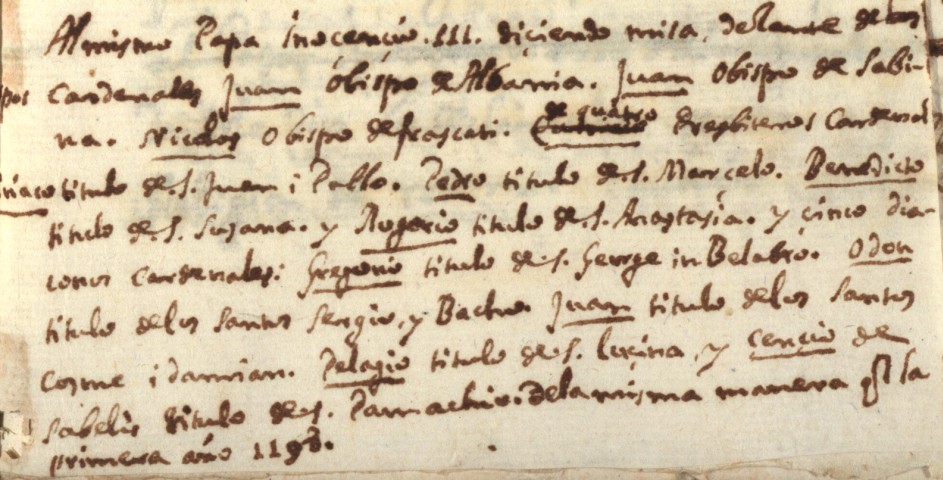 Al mismo Papa Inocencio .III. diçiendo misa, delante de los
pos Cardenales Juan Obispo de Albania. Juan Obispo de Sabi-
na. Nicolas Obispo de frascati. de quatro Presbiteros Cardenal
iriaco titulo de S. Juan i Pablo. Pedro titulo de S. Marcelo. Benedicto
titulo de S. Susana. y Rogerio titulo de S. Anastasia. y çinco dia-
conos Cardenales: Gregorio titulo de S. George in Belabro. Odon
titulo de los Santos Sergio, y Bacho. Juan titulo de los Santos
Cosme i damian. Pelagio titulo de S. luçina, y Çençio de
Sabelis titulo de S. Pamachio. de la misma manera q̃ la
primera año 1198.